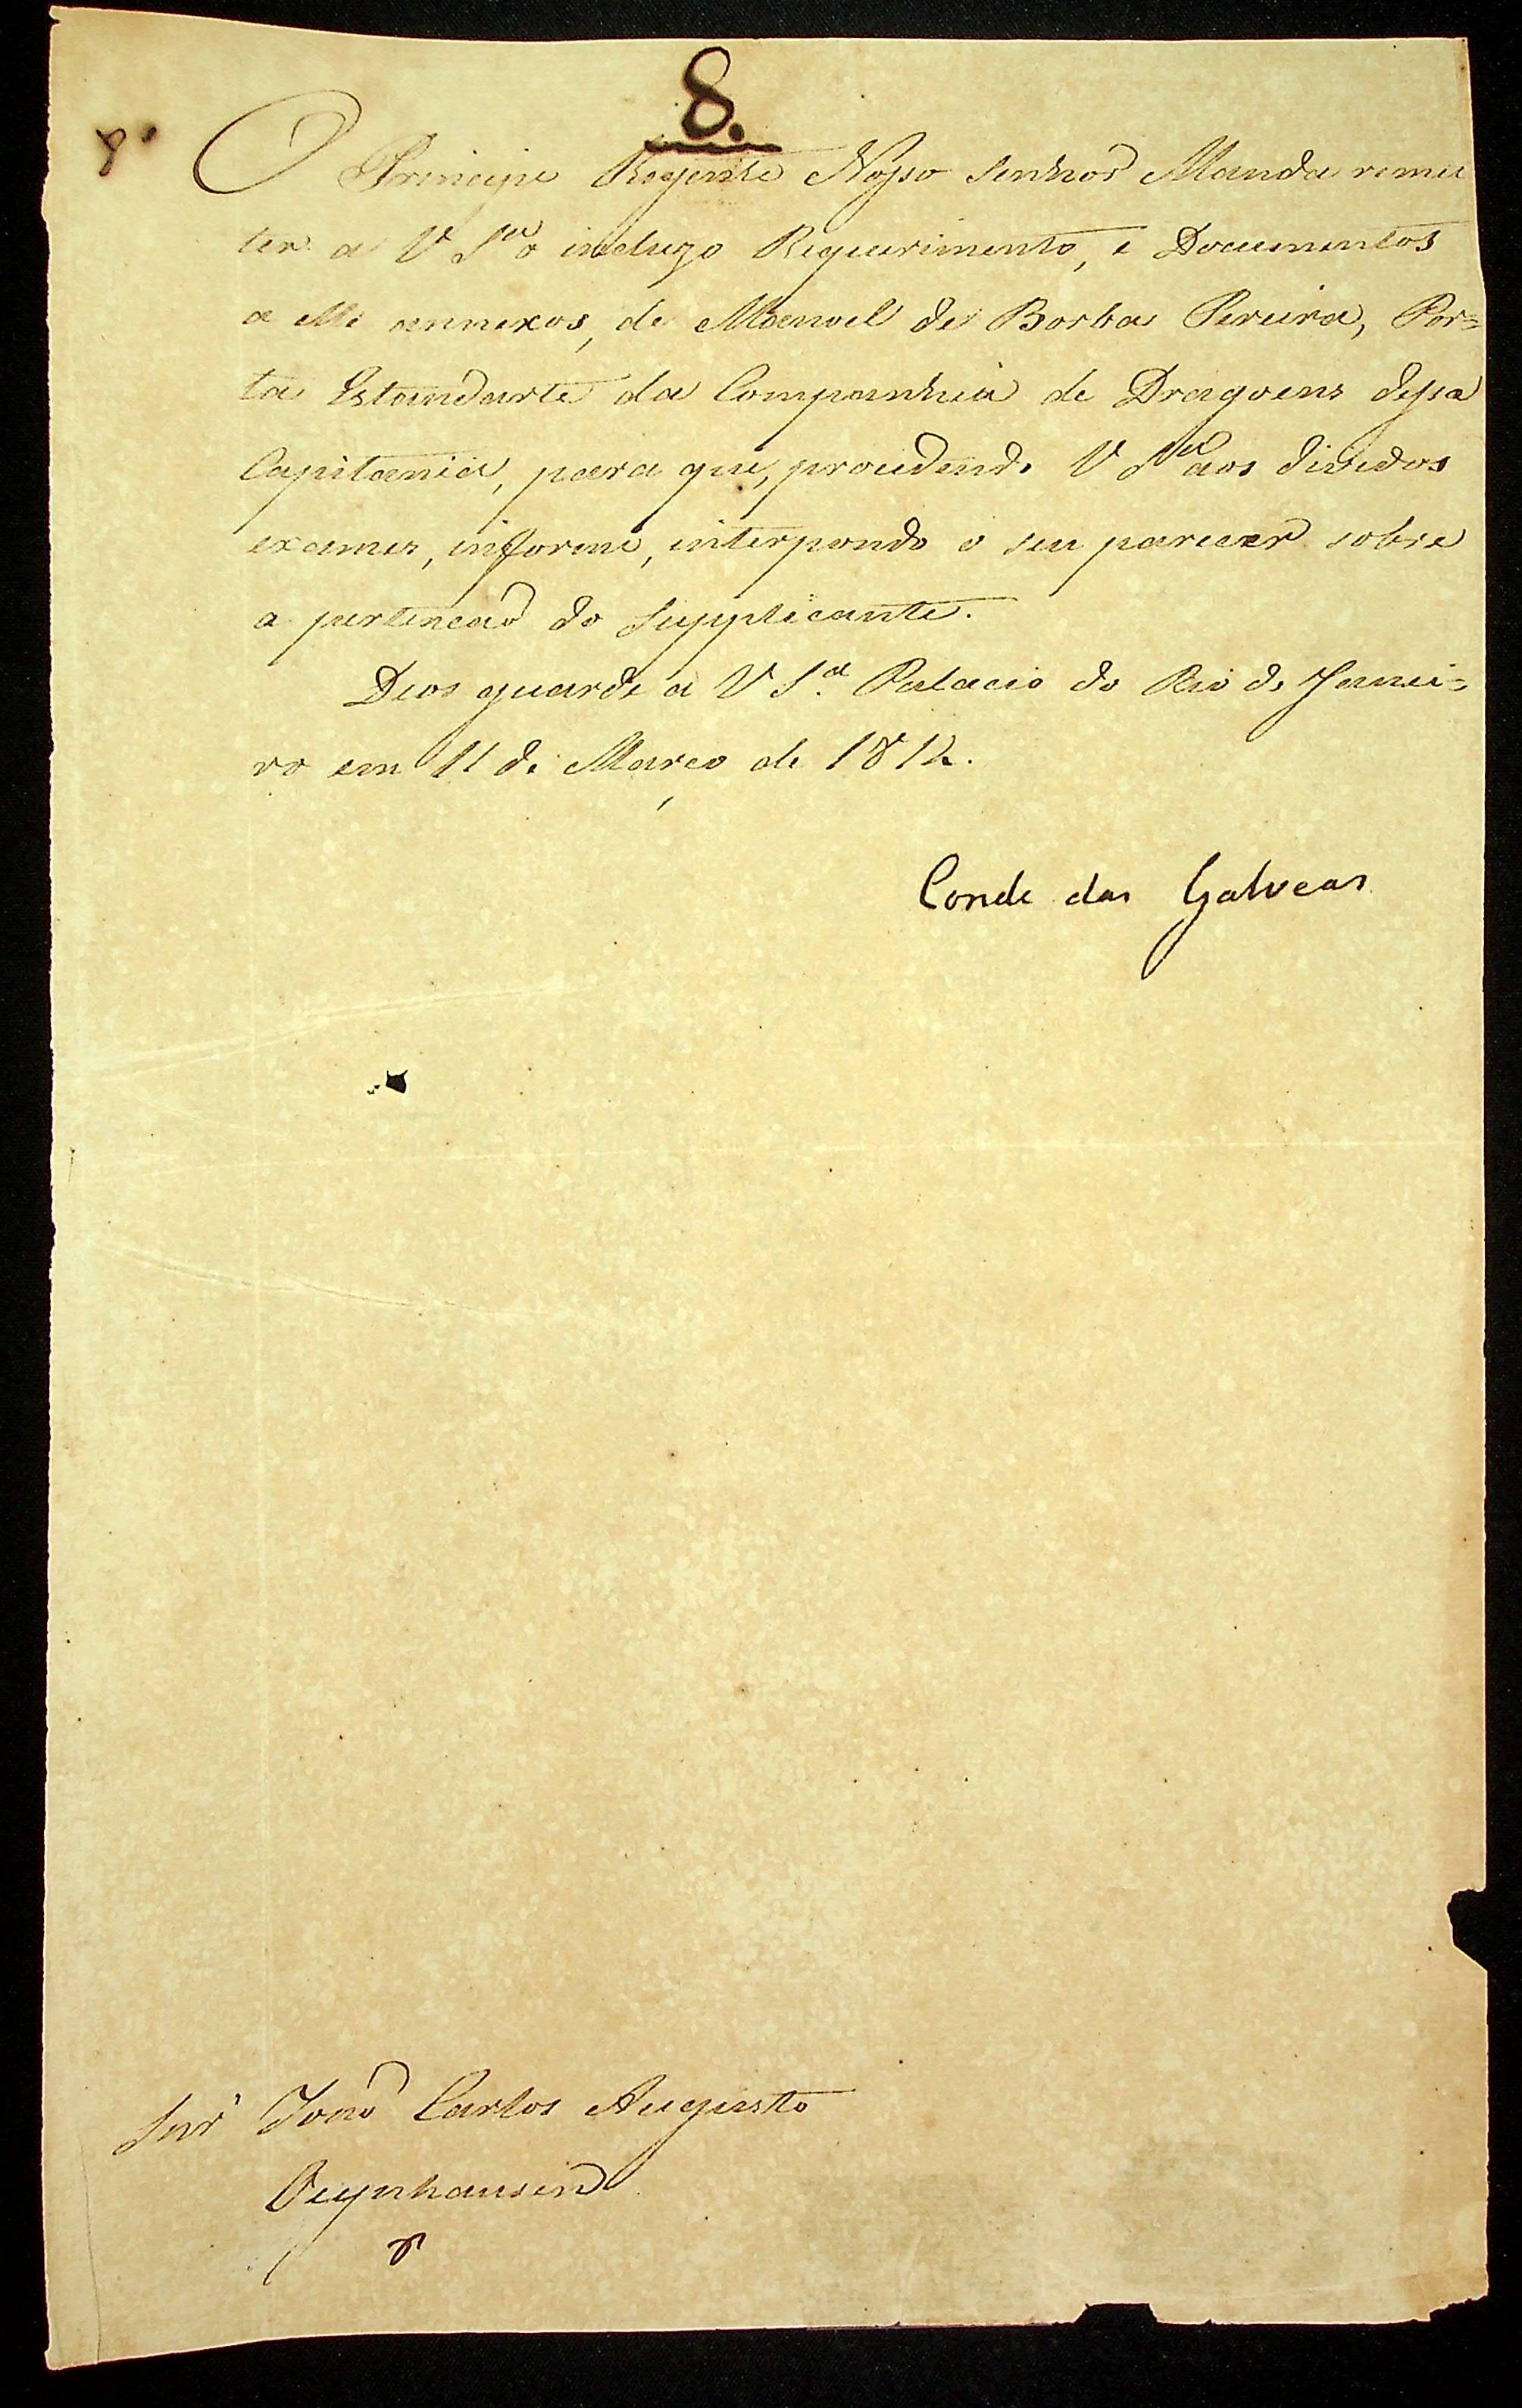 8.
8.
O Principe Regente Nosso Senhor Manda reme
ter a V Sa o incluzo Requerimento, e Documentos
a elle annexos, de Manoel de Borba Pereira, Por=
ta Estandarte da Companhia de Dragoens dessa
Capitania, para que, procedendo V Sa aos devidos
exames, informe, interpondo o seu parecer sobre
a pertencaõ do Supplicante.
Deos guarde a V S.a Palacio do Rio de Janei=
ro em 11 de Março de 1812.
Conde das Galveas
Snr João Carlos Augusto
Oeynhausen